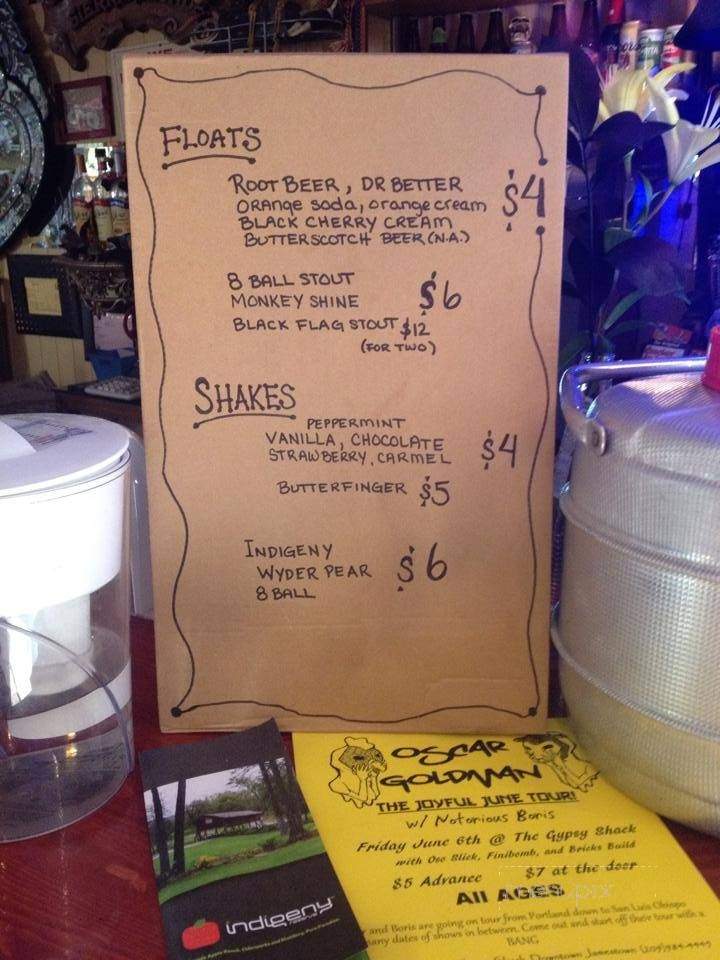 FLOATS
ROOT BEER, DR BETTER
orange soda, orange cream
BLACK CHERRY CREAM
BUTTERSCOTCH BEER (N.A.)
$4
8 BALL STOUT
MONKEY SHINE
$6
BLACK FLAG STOUT $12
(FOR TWO)
SHAKES
PEPPERMINT
VANILLA, CHOCOLATE
STRAWBERRY, CARMEL
$4
BUTTERFINGER $5
INDIGENY
WYDER PEAR
8 BALL
$6
indigeny
reserve
OSCAR
GOLDMAN
THE JOYFUL JUNE TOUR!
w/ Notorious Boris
Friday June 6th @ The Gypsy Shack
with Oso Slick, Finibomb, and Bricks Build
$5 Advance $7 at the door
All AGES
and Boris are going on tour from Portland down to San Luis Obispo
many dates of shows in between. Come out and start off their tour with a
BANG
Downtown Jamestown